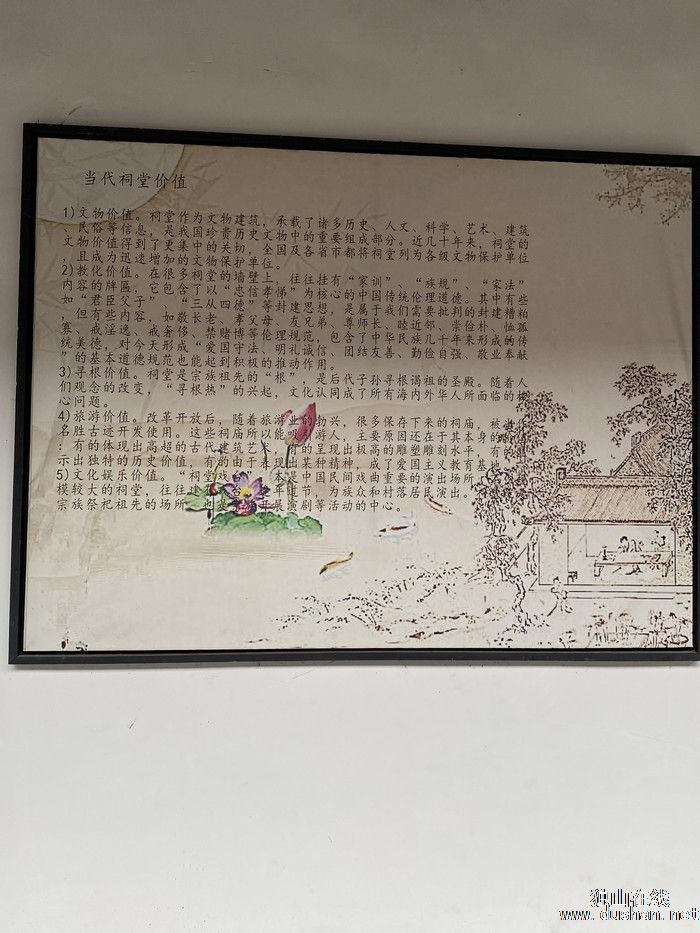 当代祠堂价值
1)文物价值。祠堂作为文物建筑，承载了诸多历史、人文、科学、艺术、建筑
、民俗等信息，是我国珍贵历史文物中的重要组成部分。近几十年来，祠堂的
文物价值得到了更集中的关切，全国及各省市都将祠堂列为各级文物保护单位
，且成为迅速增加的文物保护单位。
2)教化价值。在很多祠堂的墙壁上，往往挂有“家训”、“族规”、“家法”
内容的牌匾，它包含了以“忠信孝悌”为核心的中国传统伦理道德。其中有些
如“君臣父子”、“三从四德”等封建思想，是属于我们需要批判的封建糟粕
，但有些内容，如敬长老、孝父母、友兄弟、尊师长、睦近邻、崇俭朴、恤孤
寡、戒淫逸、戒奢侈、禁赌博等伦理规范，包含了中华民族几千年来形成的传
统美德，对今天形成“爱国守法、明礼诚信、团结友善、勤俭自强、敬业奉献
”的基本道德规范也能起到积极的推动作用。
3)寻根价值。祠堂是宗族祖先的“根”，是后代子孙寻根谒祖的圣殿。随着人
们观念的改变，“寻根热”的兴起，文化认同成了所有海内外华人所面临的核
心问题。
4)旅游价值。改革开放后，随着旅游业的勃兴，很多保存下来的祠庙，被
名胜古迹开发使用。这些祠庙所以能吸引游人，主要原因还在于其本身的
：有的体现出高超的古代建筑艺术，有的呈现出极高的雕塑雕刻水平，有的
示出独特的历史价值，有的由于表现出某种精神，成了爱国主义教育基地
5)文化娱乐价值。“祠堂戏台”本是中国民间戏曲重要的演出场所。
模较大的祠堂，往往建有戏台，年逢节，为族众和村落居民演出。
宗族祭祀祖先的场所，也是开展演剧等活动的中心。
独山在线
www.dushan.net